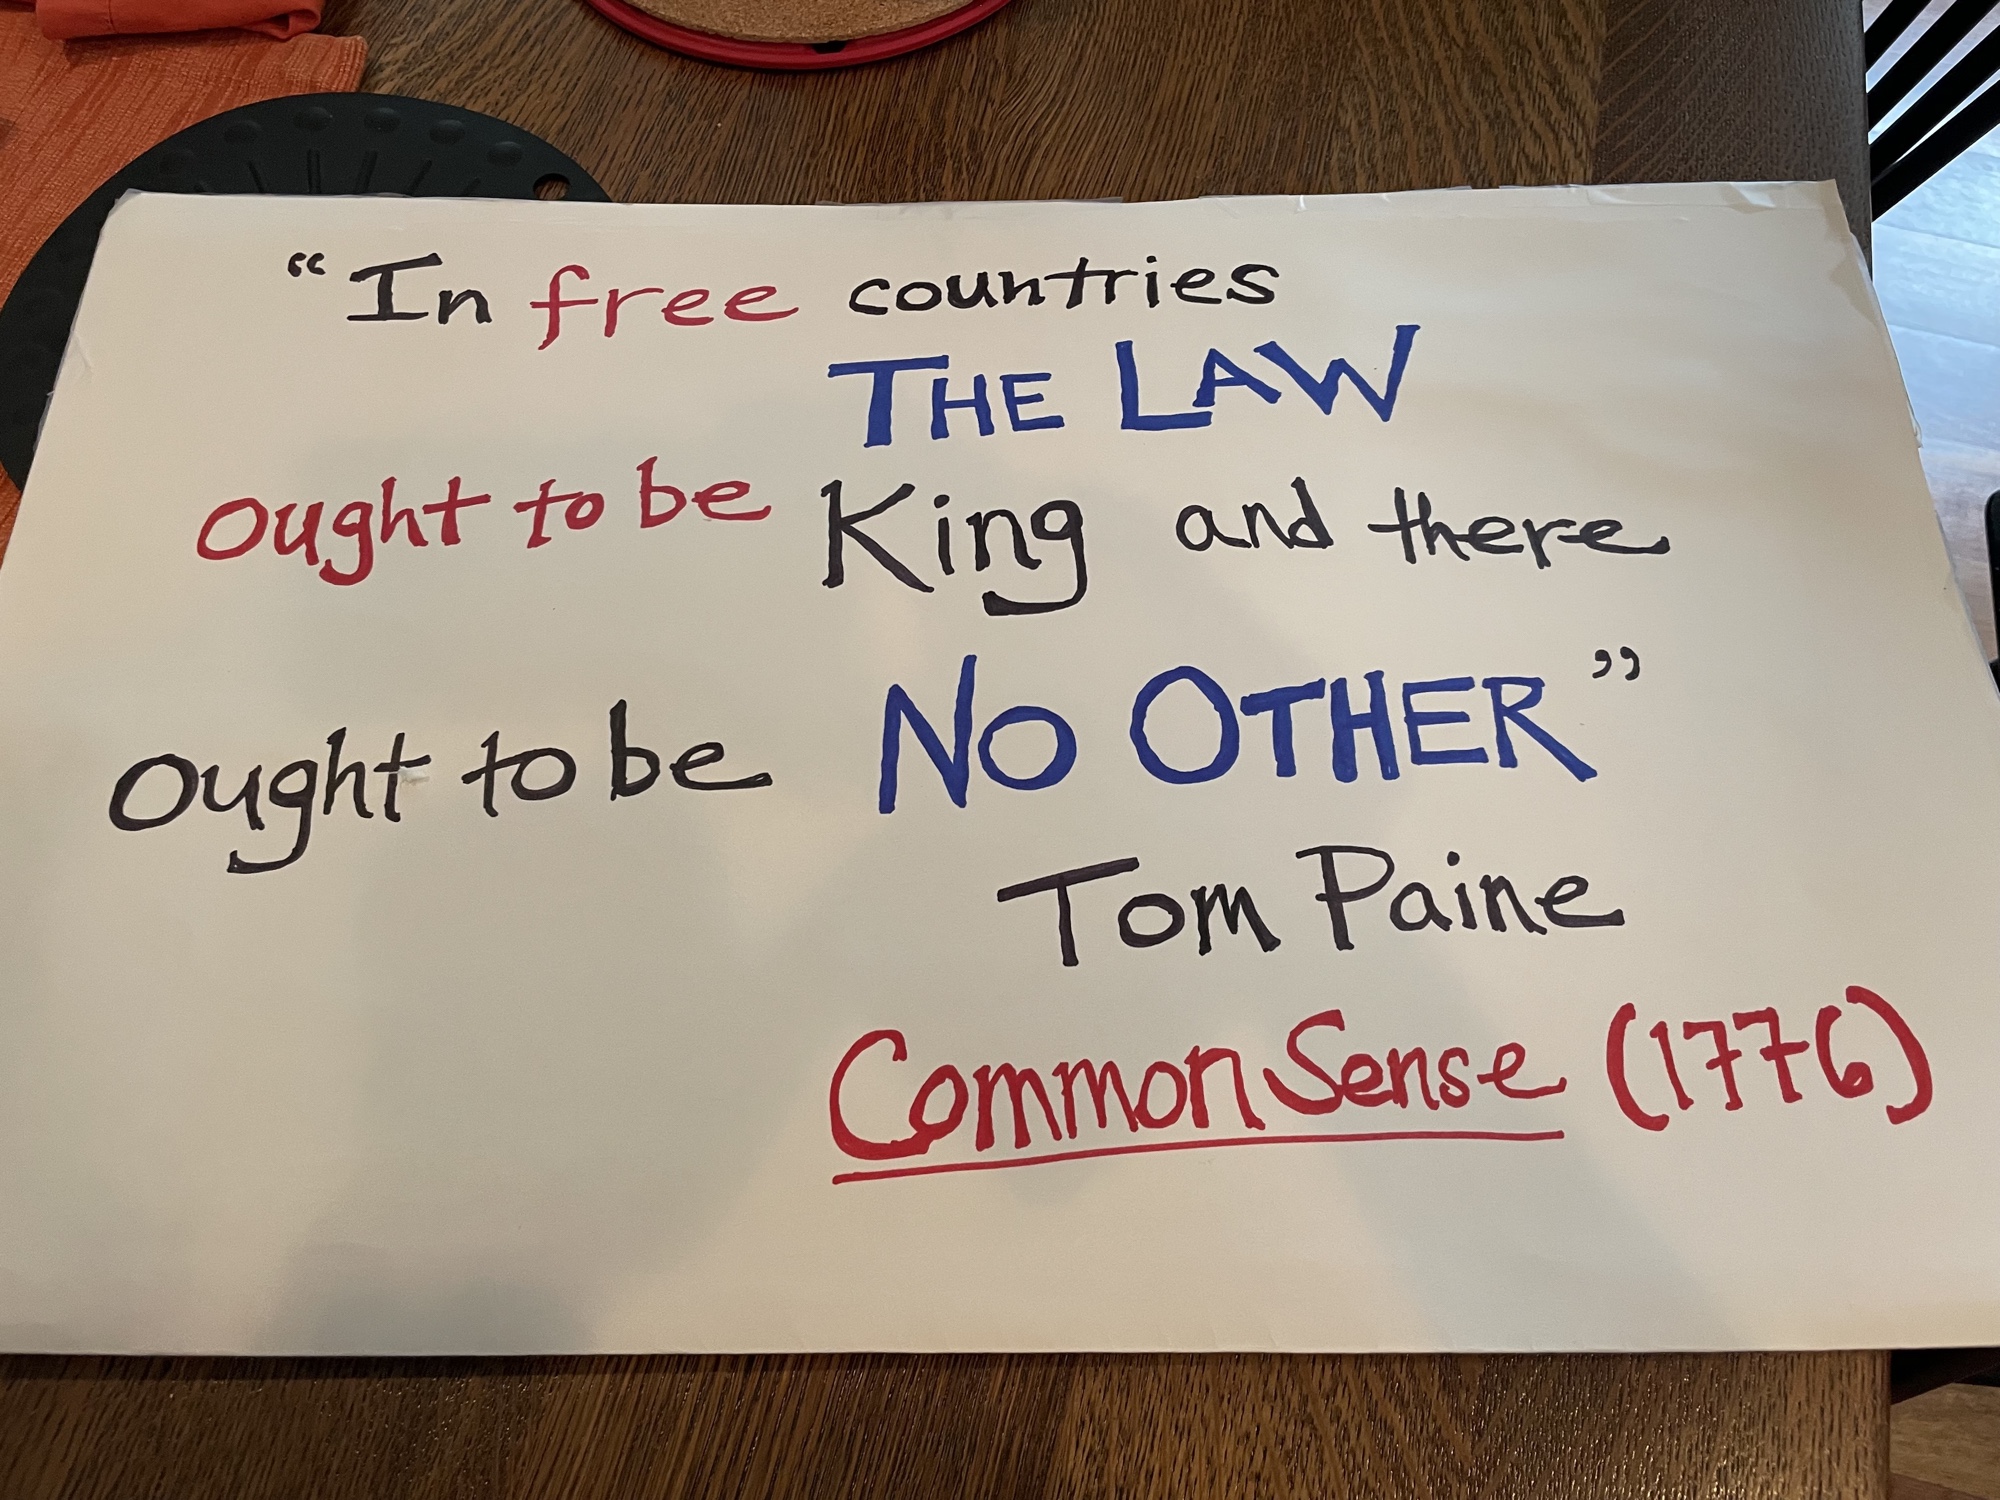 “In free countries
THE LAW
Ought to be King and there
Ought to be NO OTHER”
Tom Paine
Common Sense (1776)